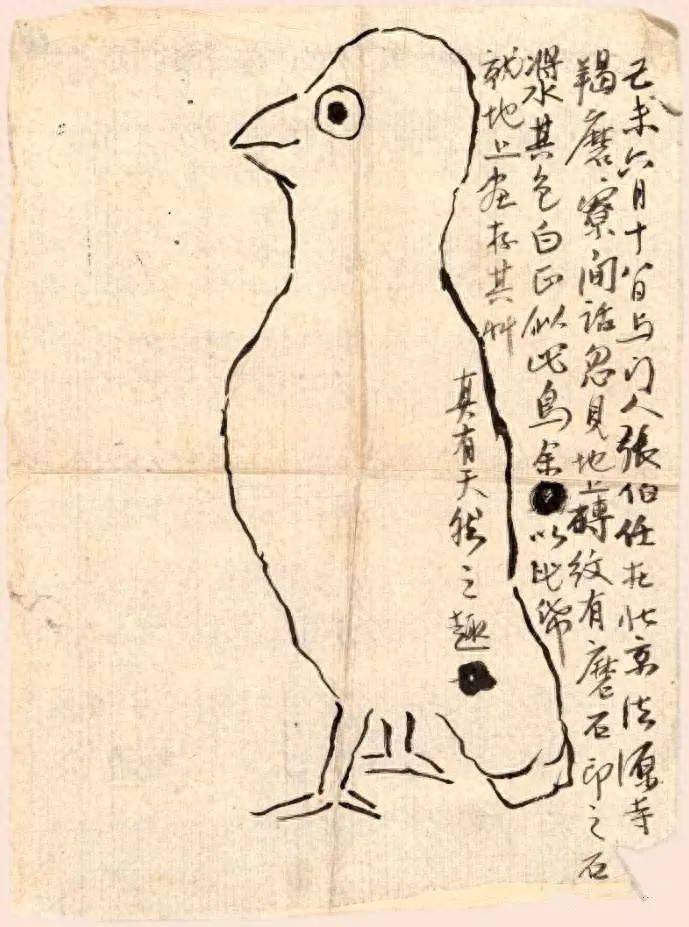 己未六月十八日与门人張伯任在北京法源寺
羯磨寮閒話忽見地上磚紋有磨石印之石
漿水其色白正似此鳥余以此帋
就地上畫存其艸
真有天然之趣